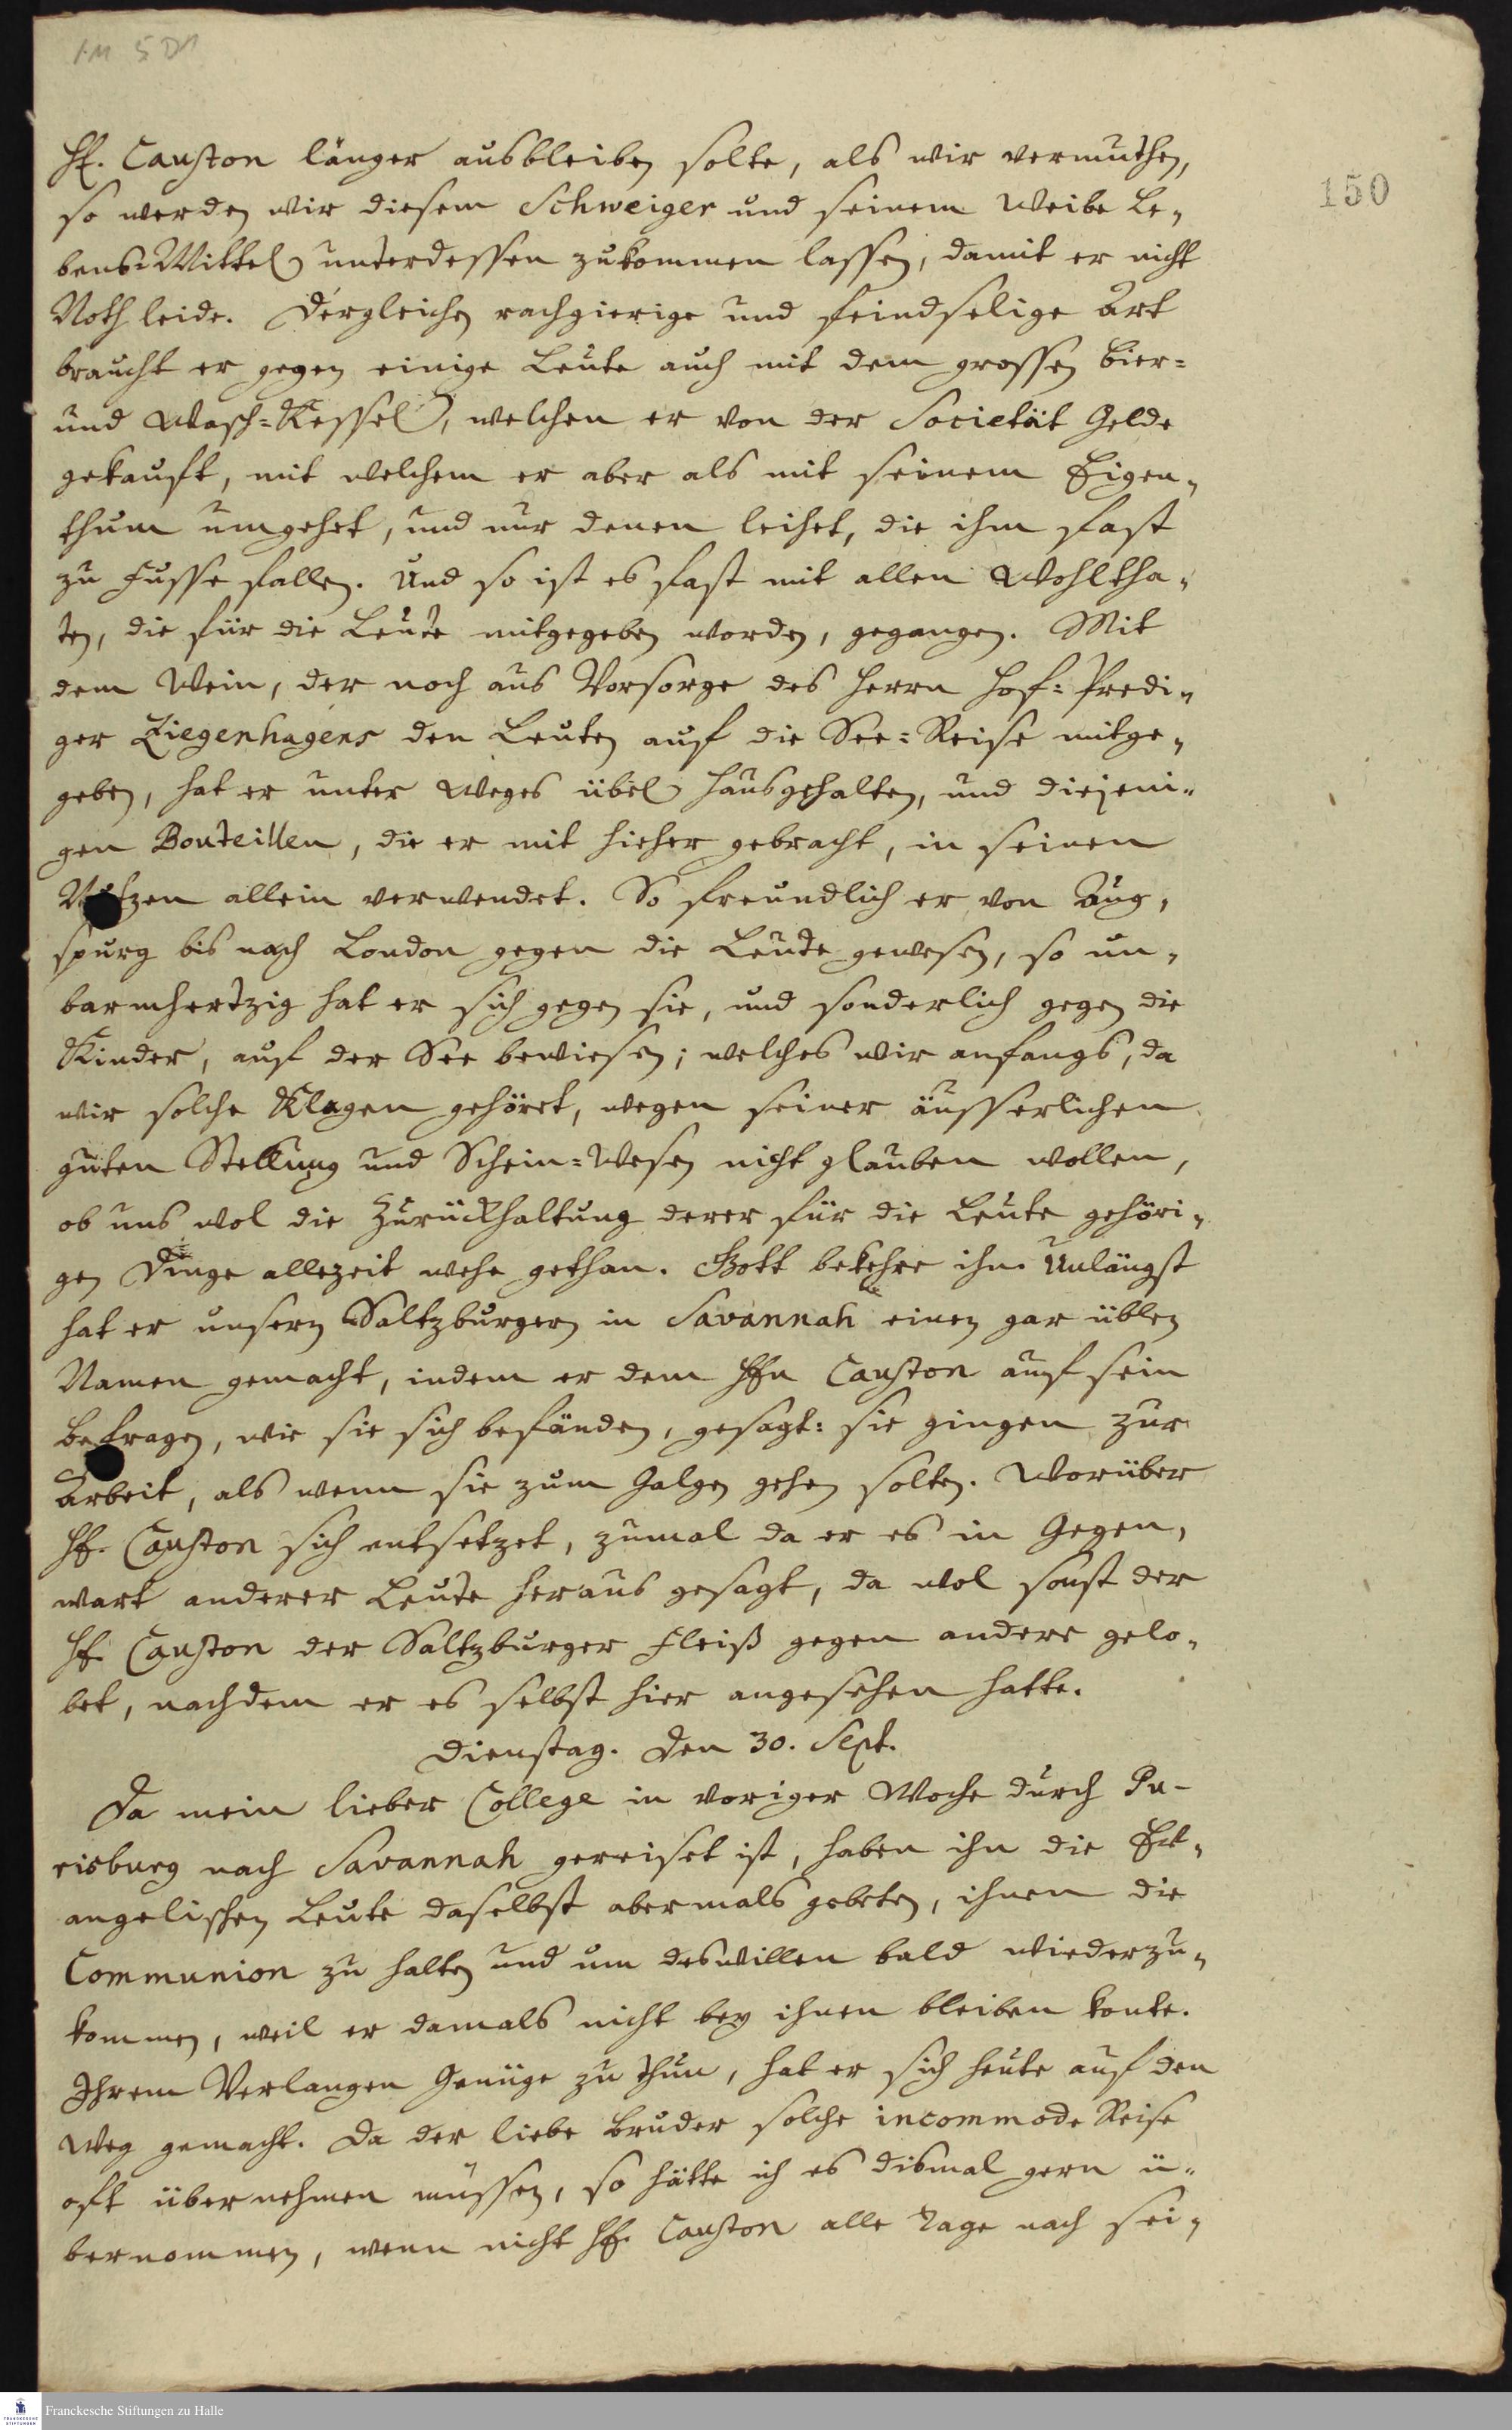 AM 5 D1
150
Hr. Causton länger ausbleiben solte, als wir vermuthen,
so werden wir diesem Schweiger und seinem Weibe Le-
bens-Mittel unterdessen zukommen lassen, damit er nicht
Noth leide. Dergleichen rachgierige und feindselige Art
braucht er gegen einige Leute auch mit dem grossen Bier-
und Wasch-Kessel, welchen er von der Societät Gelde
gekauft, mit welchem er aber als mit seinem Eigen-
thum umgehet, und nur denen leihet, die ihm fast
zu Fusse fallen. Und so ist es fast mit allen Wohltha-
ten, die für die Leute mitgegeben worden, gegangen. Mit
dem Wein, der noch aus Vorsorge des Herrn Hof-Predi-
ger Ziegenhagens den Leuten auf die See-Reise mitge-
geben, hat er unter Weges übel hausgehalten, und diejeni-
gen Bouteillen, die er mit hieher gebracht, in seinen
Nutzen allein verwendet. So freundlich er von Aug-
spurg bis nach London gegen die Leute gewesen, so un-
barmhertzig hat er sich gegen sie, und sonderlich gegen die
Kinder, auf der See bewiesen; welches wir anfangs, da
wir solche Klagen gehöret, wegen seiner äusserlichen
guten Stellung und Schein-Wesen nicht glauben wollen,
ob uns wol die Zurückhaltung derer für die Leute gehöri-
gen Dinge allezeit wehe gethan. Gott bekehre ihn. Unlängst
hat er unsern Saltzburgern in Savannah einen gar üblen
Namen gemacht, indem er dem Hrn Causton auf sein
Befragen, wie sie sich befänden, gesagt: sie gingen zur
Arbeit, als wenn sie zum Galgen gehen solten. Worüber
Hr. Causton sich entsetzet, zumal da er es in Gegen-
wart anderer Leute heraus gesagt, da wol sonst der
Hr. Causton der Saltzburger Fleiß gegen andere gelo-
bet, nachdem er es selbst hier angesehen hatte.
Dienstag. Den 30. Sept.
Da mein lieber College in voriger Woche durch Pu-
risburg nach Savannah gereiset ist, haben ihn die Ev-
angelischen Leute daselbst abermals gebeten, ihnen die
Communion zu halten und um deswillen bald wiederzu-
kommen, weil er damals nicht bey ihnen bleiben konte.
Ihrem Verlangen Genüge zu thun, hat er sich heute auf den
Weg gemacht. Da der liebe Bruder solche incommode Reise
oft übernehmen müssen, so hätte ich es dismal gern ü-
bernommen, wenn nicht Hr. Causton alle Tage nach sei-
Franckesche Stiftungen zu Halle